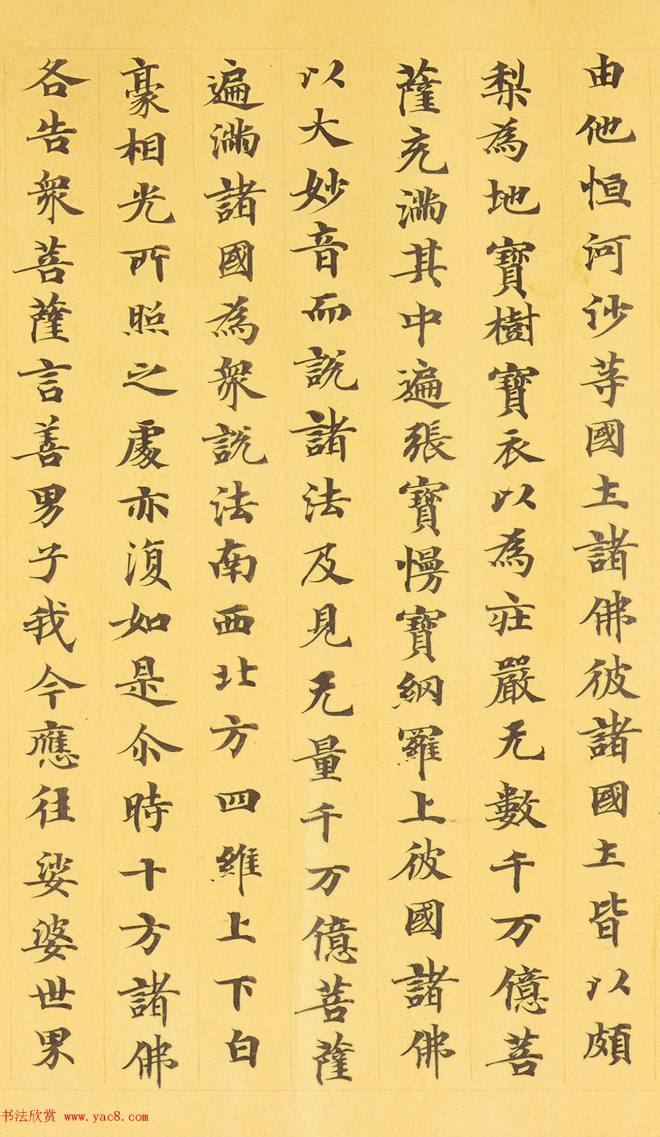 由他恒河沙等國土諸佛彼諸國土皆以頗
梨為地寶樹寶衣以為莊嚴无數千万億菩
薩充滿其中遍張寶慢寶網羅上彼國諸佛
以大妙音而說諸法及見无量千万億菩薩
遍滿諸國為眾說法南西北方四維上下白
豪相光所照之處亦復如是尒時十方諸佛
各告眾菩薩言善男子我今應往娑婆世界
书法欣赏 www.yac8.com